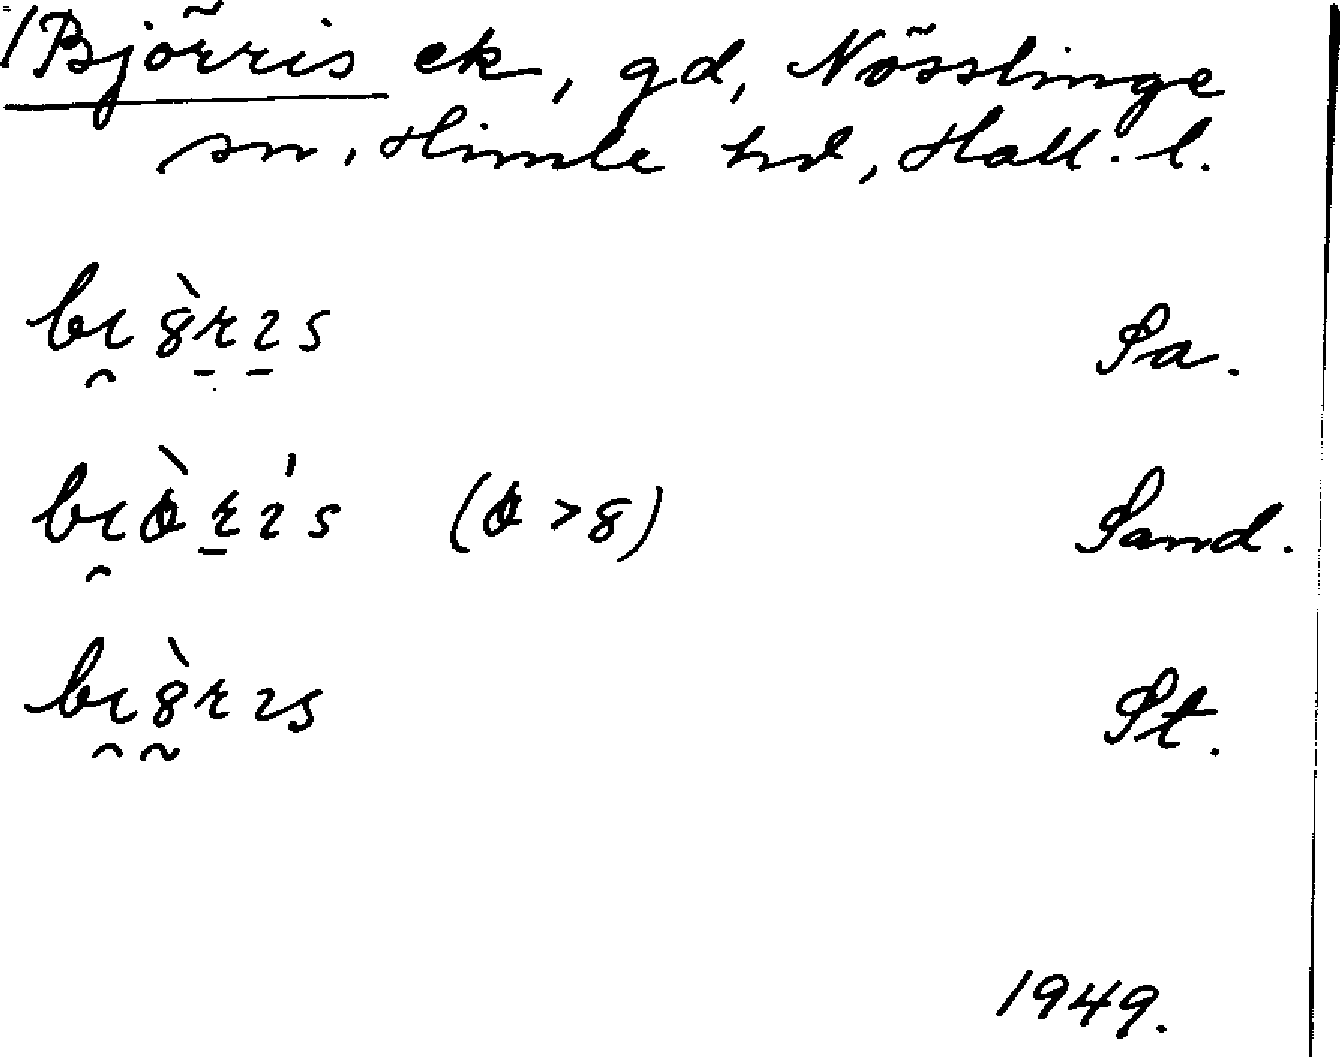 /Björris ek, gd, Nösslinge
sn, Himle hd, Hall. l.
bı8̀rıs Sa.
bıòrıs (o > 8) Sand.
bı8̀rıs St.
1949.